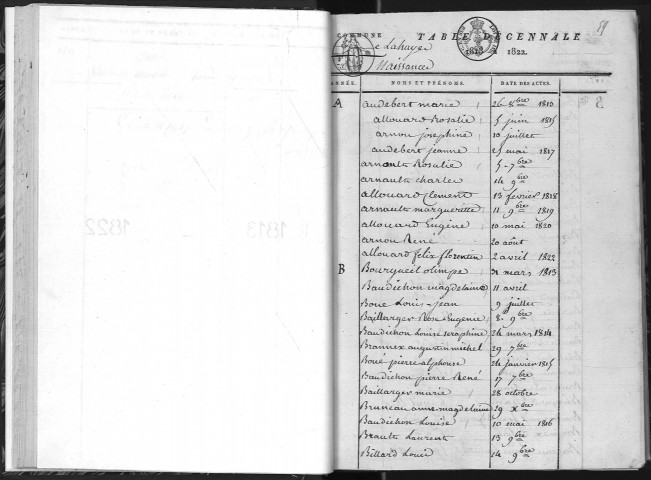 COMMUNE TABLE DÉCENNALE
De Lahaye 1813 à 1822.
Naissances
ANNÉE. NOMS ET PRÉNOMS. DATE DES ACTES.
A audebert marie 26 8bre 1813
allouard Rosalie 5 juin 1815
arnou joséphine 10 juillet
audebert jeanne 25 mai 1817
arnault Rosalie 5 - 7bre
arnault charles 14 9bre
allouard clement 13 fevrier 1818
arnault margueritte 11 9bre 1819
allouard Eugéne 10 mai 1820
arnou René 20 août
allouard felix florentin 2 avril 1822
B Bourgueil olimpe 31 mars 1813
Baudichon magdelaine 11 avril
Boue Louis-jean 9 juillet
Baillarger Rose Eugenie 8 - 9bre
Baudichon Louise seraphine 24 mars 1814
Brannex augustin michel 29 7bre
Boué pierre alphonse 24 janvier 1815
Baudichon pierre René 17 7bre
Baillarger marie 28 octobre
Bruneau anne magdelaine 29 Xbre
Baudichon Louise 10 mai 1816
Brault Laurent 13 9bre
Billard Louis 14 9bre
1822
1813